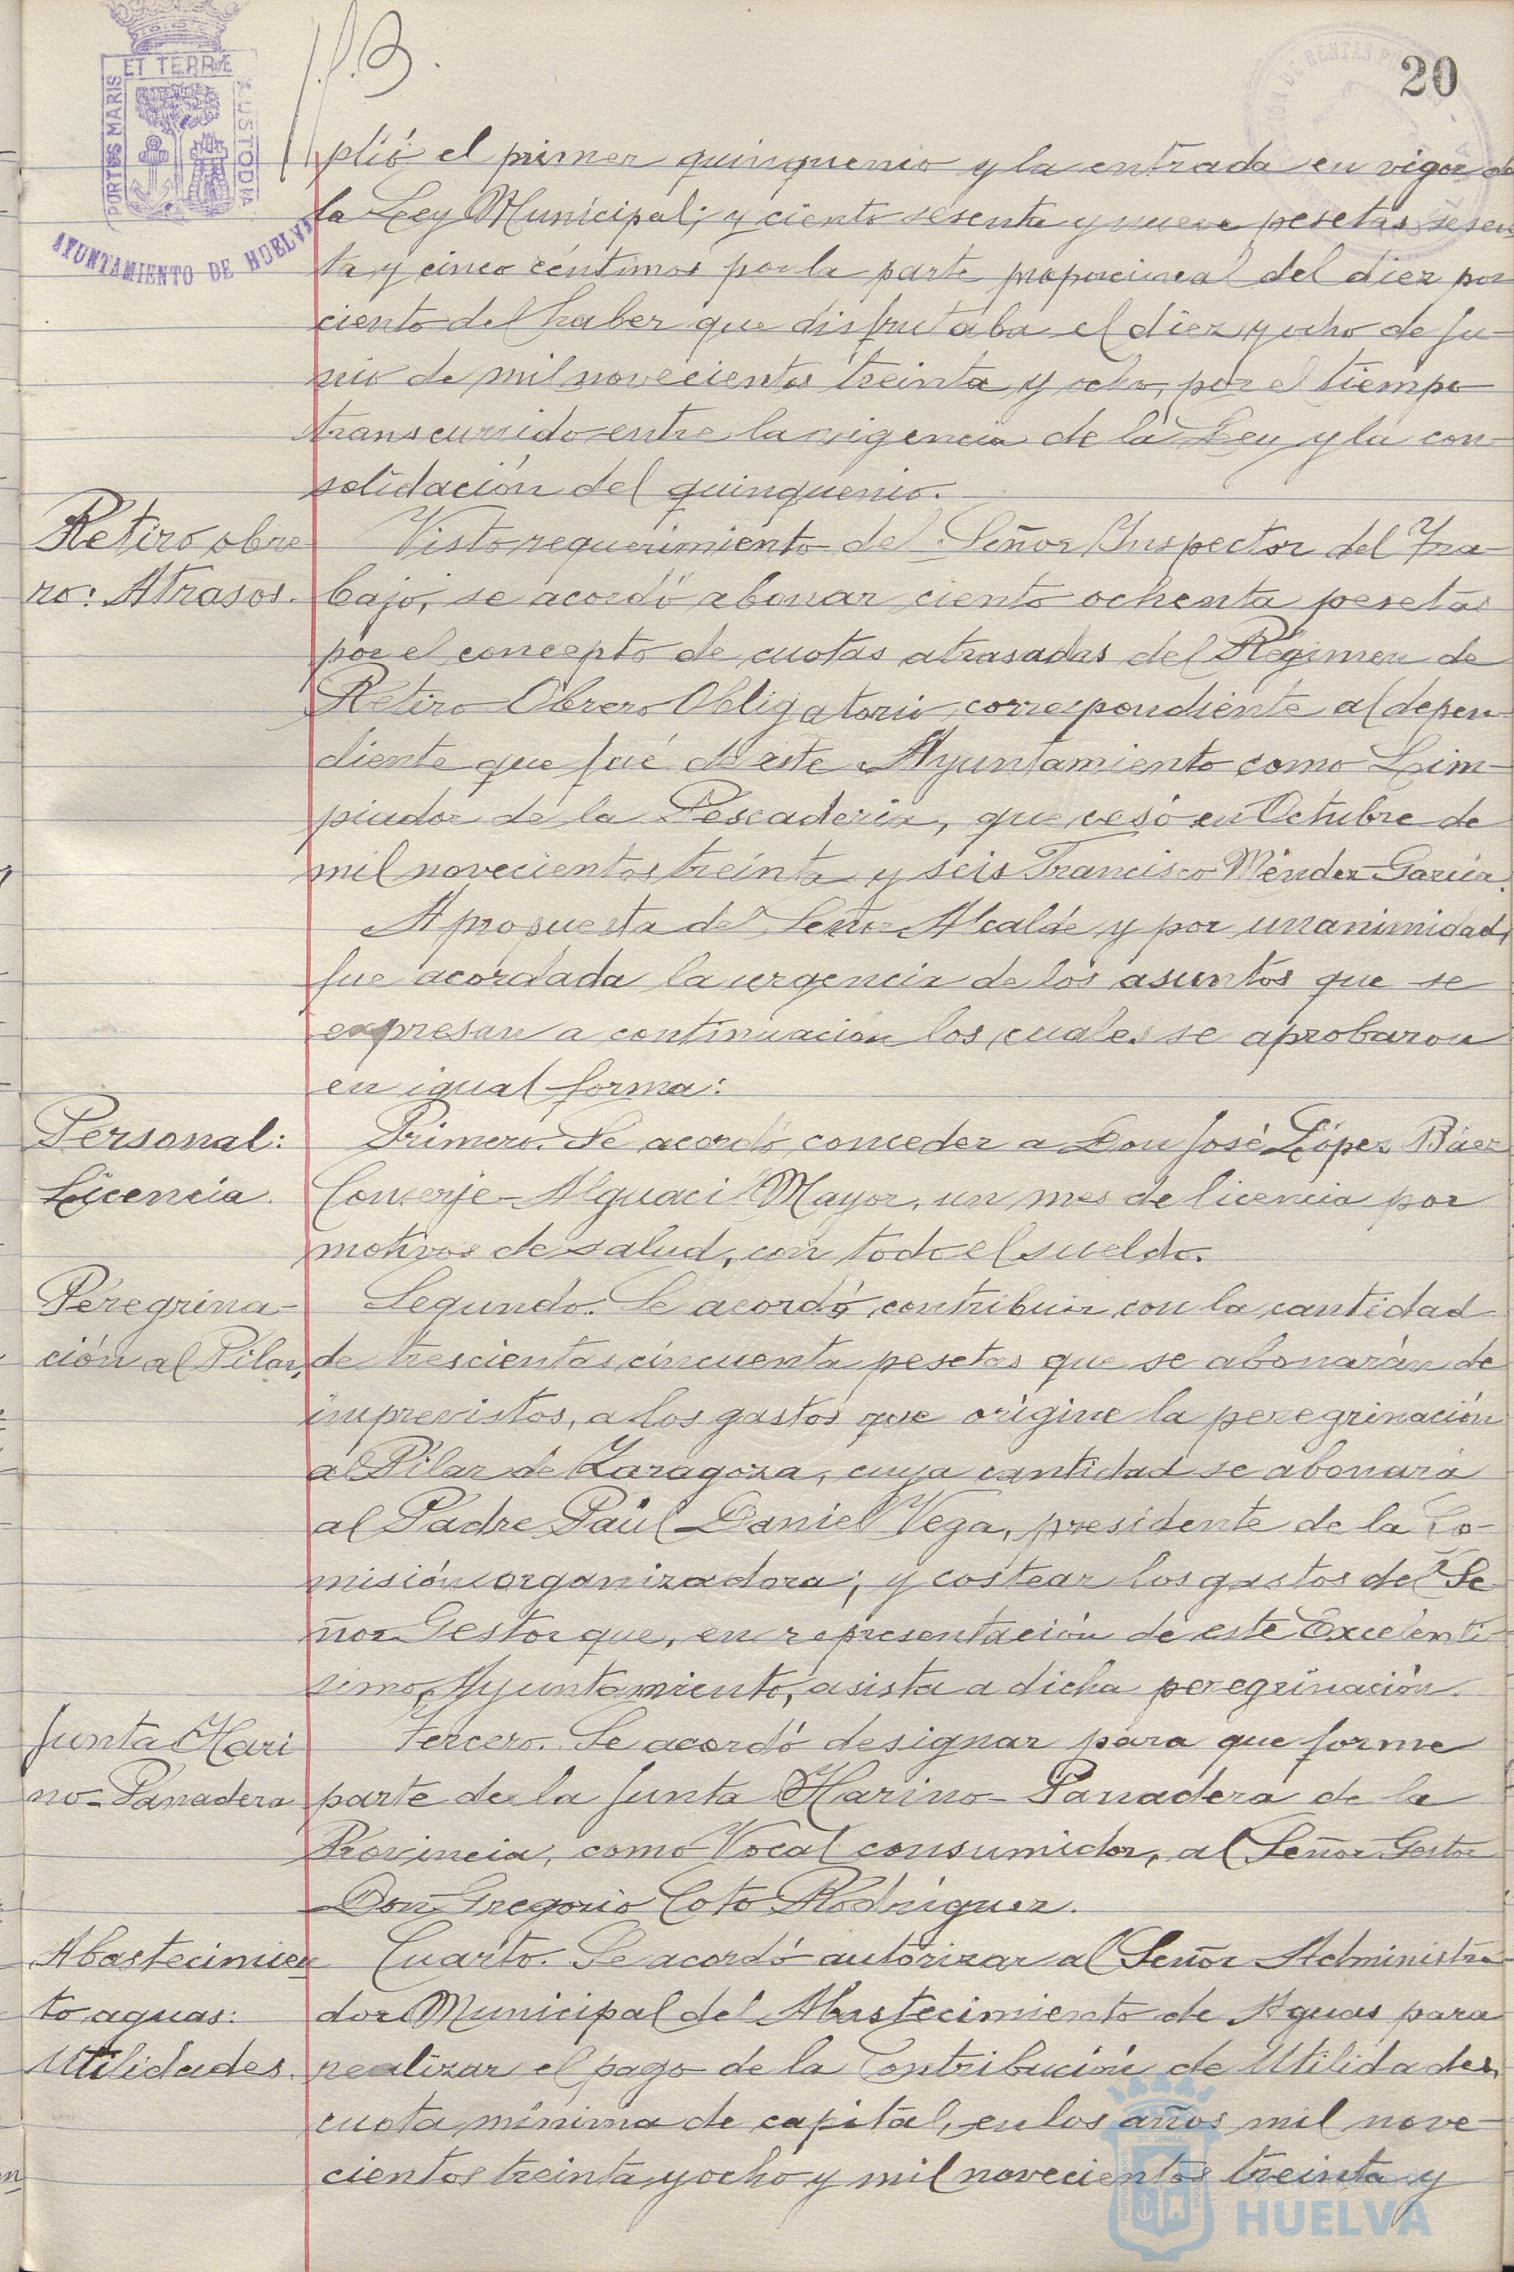 20
PORTUS MARIS ET TERRE CUSTODIA
AYUNTAMIENTO DE HUELVA
plió el primer quinquenio y la entrada en vigor de
la Ley Municipal; y ciento sesenta y nueve pesetas sesen
ta y cinco céntimos por la parte proporcional del diez por
ciento del haber que disfrutaba el diez y ocho de Ju-
nio de mil novecientos treinta y ocho, por el tiempo
transcurrido entre la vigencia de la Ley y la con-
solidación del quinquenio.
Retiro obre
ro: Atrasos.
Visto requerimiento del Señor Inspector del Tra-
bajo, se acordó abonar ciento ochenta pesetas
por el concepto de cuotas atrasadas del Régimen de
Retiro Obrero Obligatorio, correspondiente al depen-
diente que fué de este Ayuntamiento como Lim-
piador de la Pescaderia, que cesó en Octubre de
mil novecientos treinta y seis Francisco Méndez García.
A propuesta del Señor Alcalde y por unanimidad,
fue acordada la urgencia de los asuntos que se
expresan a continuación los cuales se aprobaron
en igual forma:
Personal:
Licencia.
Primero. Se acordó conceder a Don José López Báez
Conserje-Alguacil Mayor, un mes de licencia por
motivos de salud, con todo el sueldo.
Peregrina-
ción al Pilar,
Segundo. Se acordó contribuir con la cantidad
de trescientas cincuenta pesetas que se abonarán de
imprevistos, a los gastos que origine la peregrinación
al Pilar de Zaragoza, cuya cantidad se abonará
al Padre Paúl Daniel Vega, presidente de la Co-
misión organizadora; y costear los gastos del Se-
ñor Gestor que, en representación de este Excelenti-
simo Ayuntamiento, asista a dicha peregrinación.
Junta Hari
no-Panadera
Tercero. Se acordó designar para que forme
parte de la Junta Harino-Panadera de la
Provincia, como Vocal consumidor, al Señor Gestor
Don Gregorio Coto Rodriguez.
Abastecimien
to aguas:
Utilidades.
Cuarto. Se acordó autorizar al Señor Administra-
dor Municipal del Abastecimiento de Aguas para
realizar el pago de la Contribución de Utilidades,
cuota minima de capital, en los años mil nove-
cientos treinta y ocho y mil novecientos treinta y
HUELVA